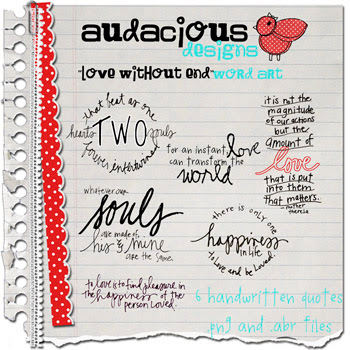 audacious
designs
love without end word art
that beat as one
hearts TWO souls
forever entertwined
for an instant, love
can transform the
world
it is not the
magnitude
of our actions
but the
amount of
love
that is put
into them
that matters.
mother
theresa
whatever our
souls
are made of
his & mine
are the same.
there is only one
happiness
in life
to love and be loved.
to love is to find pleasure in
the happiness of the
person loved.
6 handwritten quotes
.png and .abr files